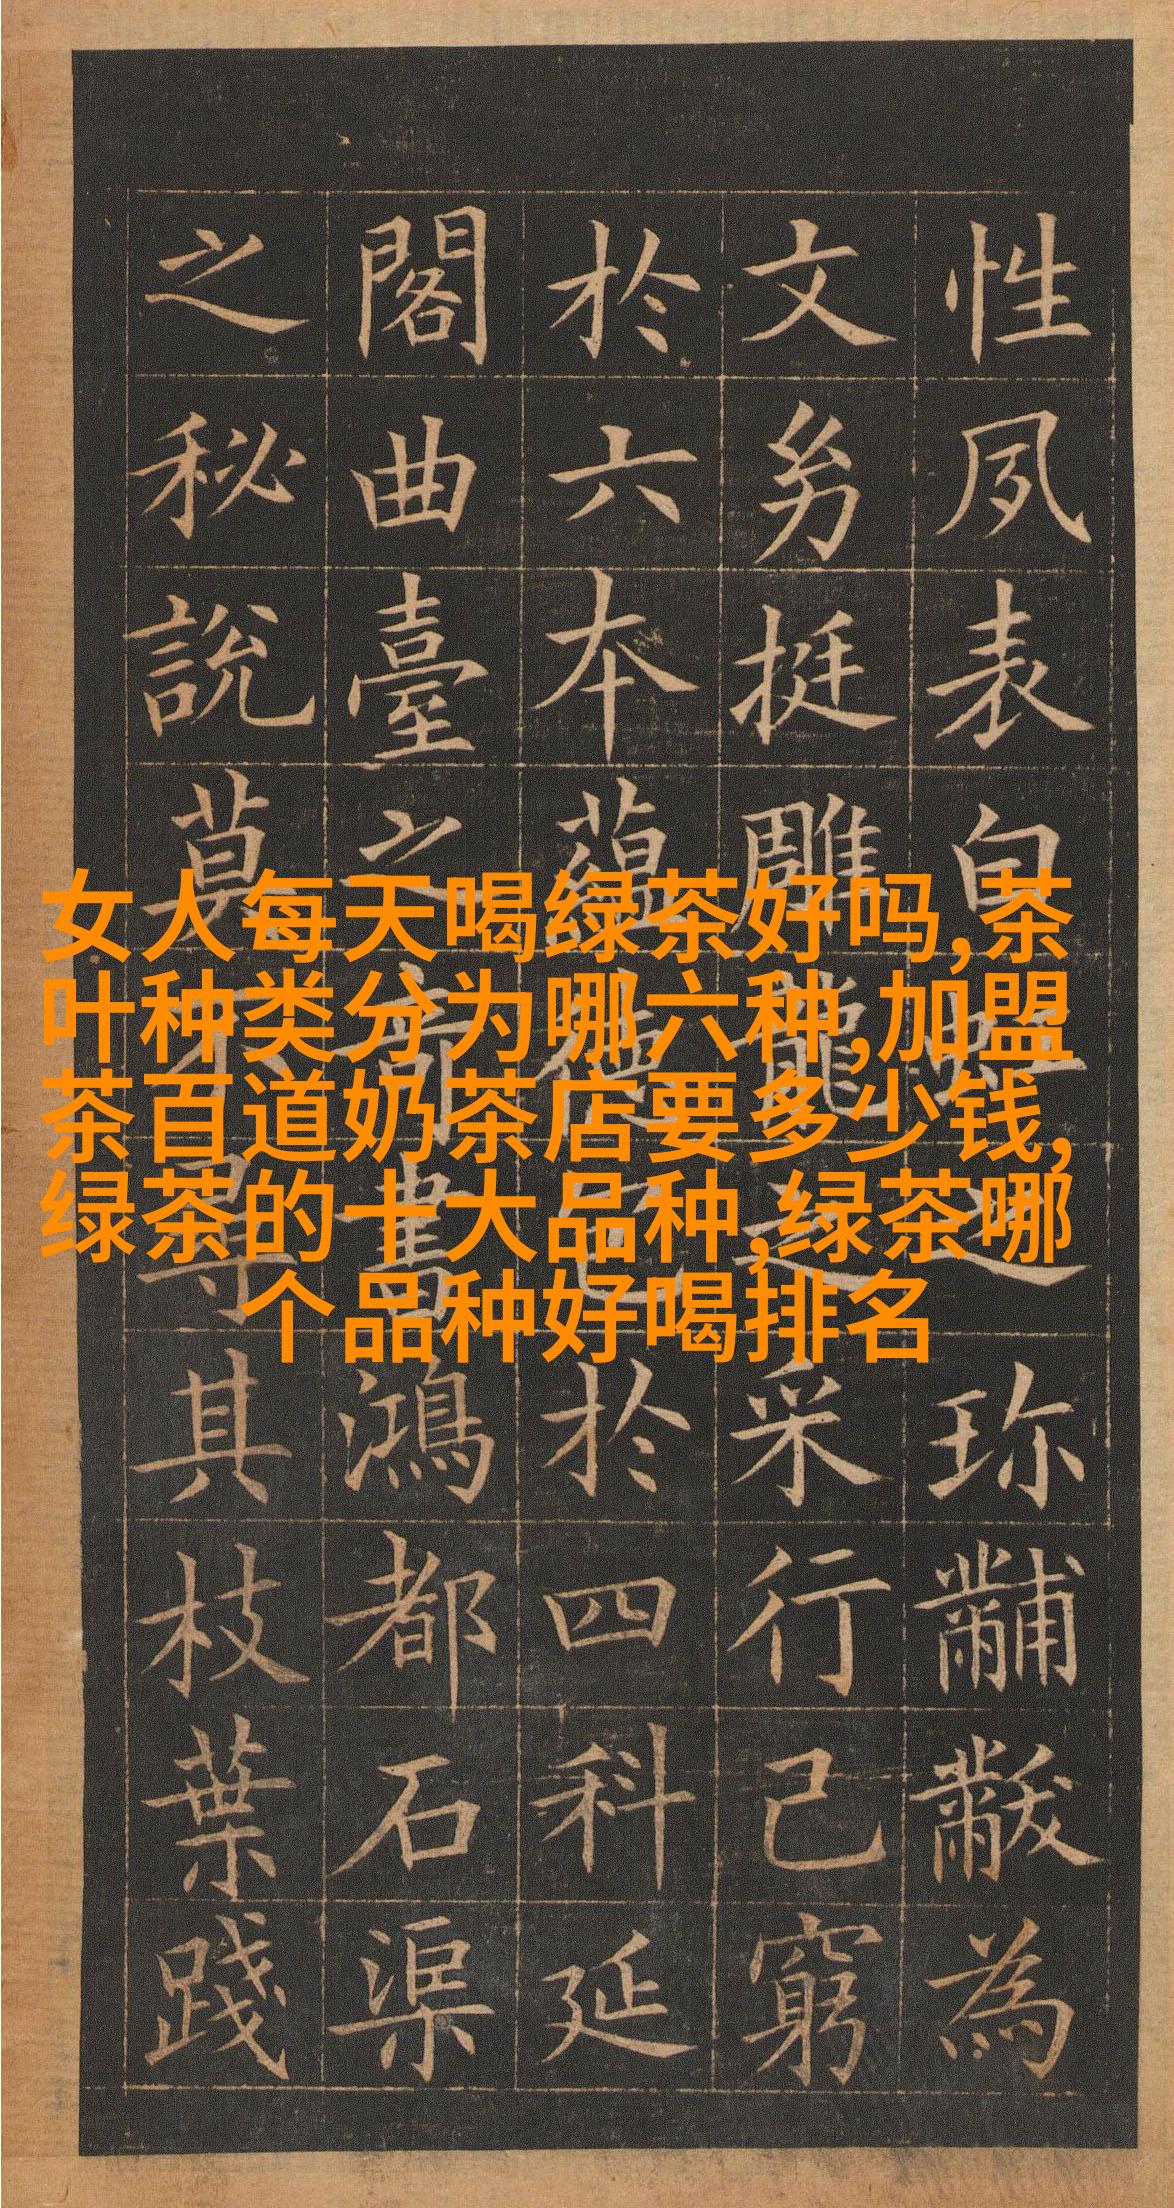 女人每天喝绿茶好吗,茶
叶种类分为哪六种,加盟
茶百道奶茶店要多少钱,
绿茶的十大品种,绿茶哪
个品种好喝排名
性夙表白虹之珍黼黻為
文幼挺雕龍之采行己窮
於六本蘊德包於四科延
閣曲臺之奇書鴻都石渠
之秘說莫不尋其枝葉踐